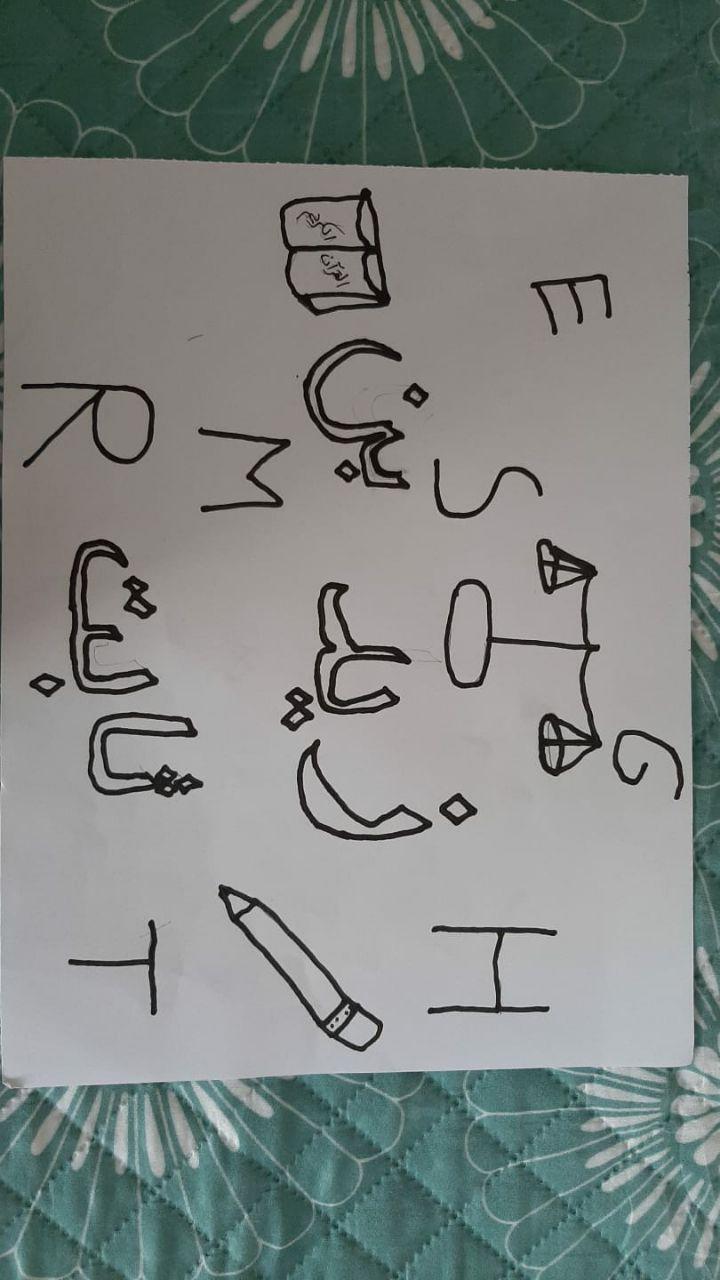 G
E
S
H
زيد بن
القرآن
الكريم
M
ثابت
R
T